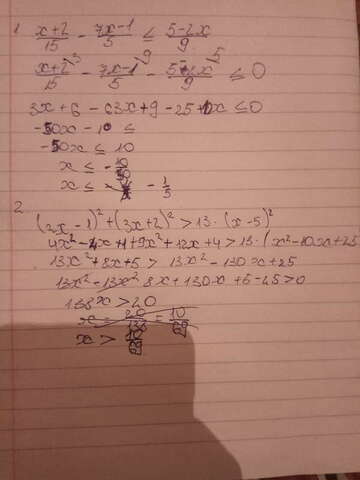 1. (x+2)/15 - (7x-1)/5 ≤ (5-2x)/9
(x+2)/15 \3 - (7x-1)/5 \9 - (5-2x)/9 \5 ≤ 0
3x+6 - 63x+9 - 25+10x ≤ 0
-50x - 10 ≤
-50x ≤ 10
x ≤ - 10/50
x ≤ - 1/5
2.
(2x-1)² + (3x+2)² > 13·(x-5)²
4x² - 4x+1+9x²+12x+4 > 13·(x²-10x+25
13x²+8x+5 > 13x²-130x+25
13x²-13x² 8x+130x+5-25>0
138x > 20
x = 20/138 = 10/69
x > 10/69